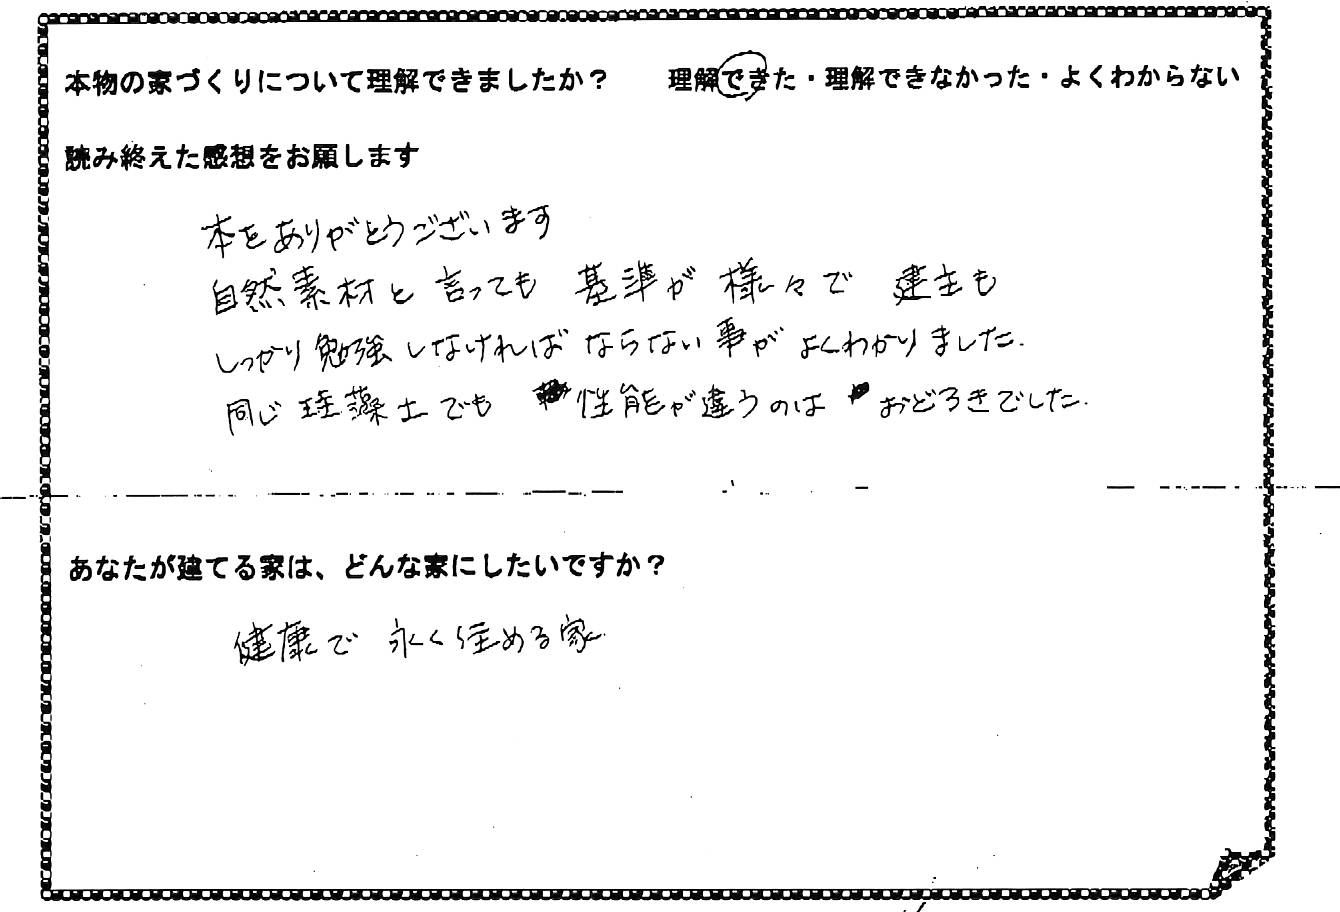 本物の家づくりについて理解できましたか？　理解できた・理解できなかった・よくわからない
読み終えた感想をお願します
本をありがとうございます
自然素材と言っても 基準が 様々で 建主も
しっかり勉強しなければならない事がよくわかりました.
同じ 珪藻土でも 性能が違うのは おどろきでした.
あなたが建てる家は、どんな家にしたいですか？
健康で 永く住める家